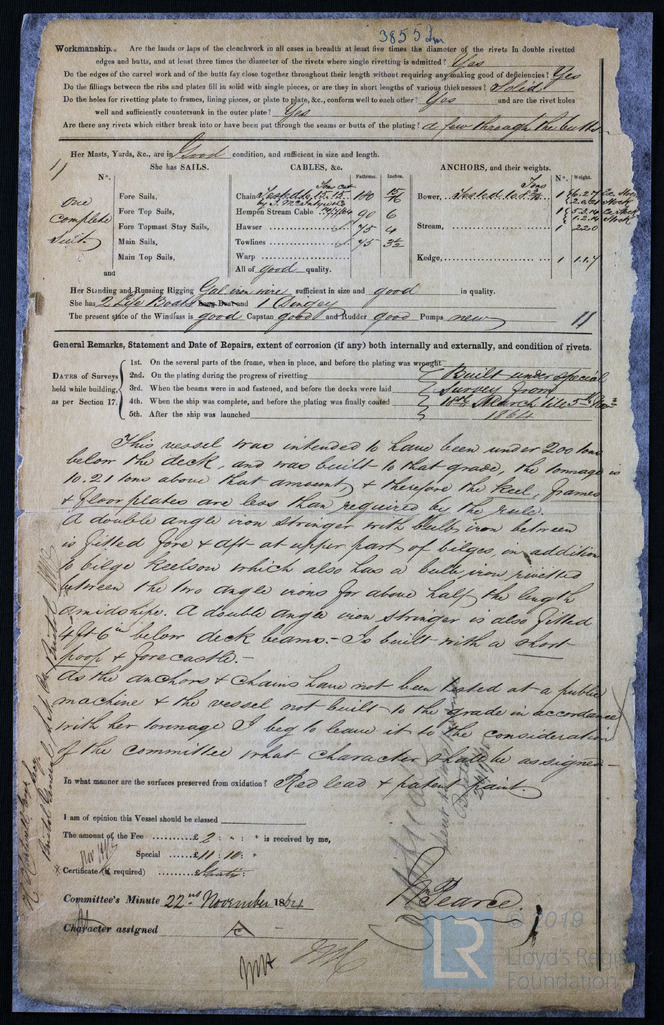 38552m
Workmanship. Are the lands or laps of the clenchwork in all cases in breadth at least five times the diameter of the rivets In double rivetted
edges and butts, and at least three times the diameter of the rivets where single rivetting is admitted? Yes
Do the edges of the carvel work and of the butts fay close together throughout their length without requiring any making good of deficiencies? Yes
Do the fillings between the ribs and plates fill in solid with single pieces, or are they in short lengths of various thicknesses? Solid
Do the holes for rivetting plate to frames, lining pieces, or plate to plate, &c., conform well to each other? Yes and are the rivet holes
well and sufficiently countersunk in the outer plate? Yes
Are there any rivets which either break into or have been put through the seams or butts of the plating? a few through the butts
Her Masts, Yards, &c., are in Good condition, and sufficient in size and length.
She has SAILS. CABLES, &c. ANCHORS, and their weights.
N°. Fathoms. Inches. N°. Weight.
One complete suit
and
Fore Sails,
Fore Top Sails,
Fore Topmast Stay Sails,
Main Sails,
Main Top Sails,
Chain Tested to 180
Hempen Stream Cable 90 6
Hawser 75 4
Towlines 45 3½
Warp
All of good quality.
Bower, Tested to
Stream, 1 2.2.0
Kedge, 1 1.1.7
Her Standing and Running Rigging Gal iron wire sufficient in size and good in quality.
She has 2 Life Boats Long Boat and 1 Dingey
The present state of the Windlass is good Capstan good and Rudder good Pumps new
General Remarks, Statement and Date of Repairs, extent of corrosion (if any) both internally and externally, and condition of rivets.
DATES of Surveys held while building, as per Section 17.
1st. On the several parts of the frame, when in place, and before the plating was wrought
2nd. On the plating during the progress of rivetting
3rd. When the beams were in and fastened, and before the decks were laid
4th. When the ship was complete, and before the plating was finally coated
5th. After the ship was launched
Built under special
Survey from
15th March till 5th Nov
1864
This vessel was intended to have been under 200 tons
below the deck, and was built to that grade, the tonnage is
10.21 tons above that amount & therefore the keel, frames
& floor plates are less than required by the rule.
A double angle iron stringer with bulb iron between
is fitted fore & aft at upper part of bilges, in addition
to bilge keelson which also has a bulb iron rivetted
between the two angle irons for about half the length
amidships. A double angle iron stringer is also fitted
4ft 6in below deck beams.- Is built with a short
poop & forecastle.-
As the anchors & chains have not been tested at a public
machine & the vessel not built to the grade in accordance
with her tonnage I beg to leave it to the consideration
of the committee what character should be assigned.-
In what manner are the surfaces preserved from oxidation? Red lead & patent paint.
I am of opinion this Vessel should be classed
The amount of the Fee £ 2 : " : " is received by me,
Special £11 : 10 : "
Certificate (if required) Gratis
Committee's Minute 22nd November 1864
Pearce
Character assigned
© 2019
LR
Lloyd's Register
Foundation